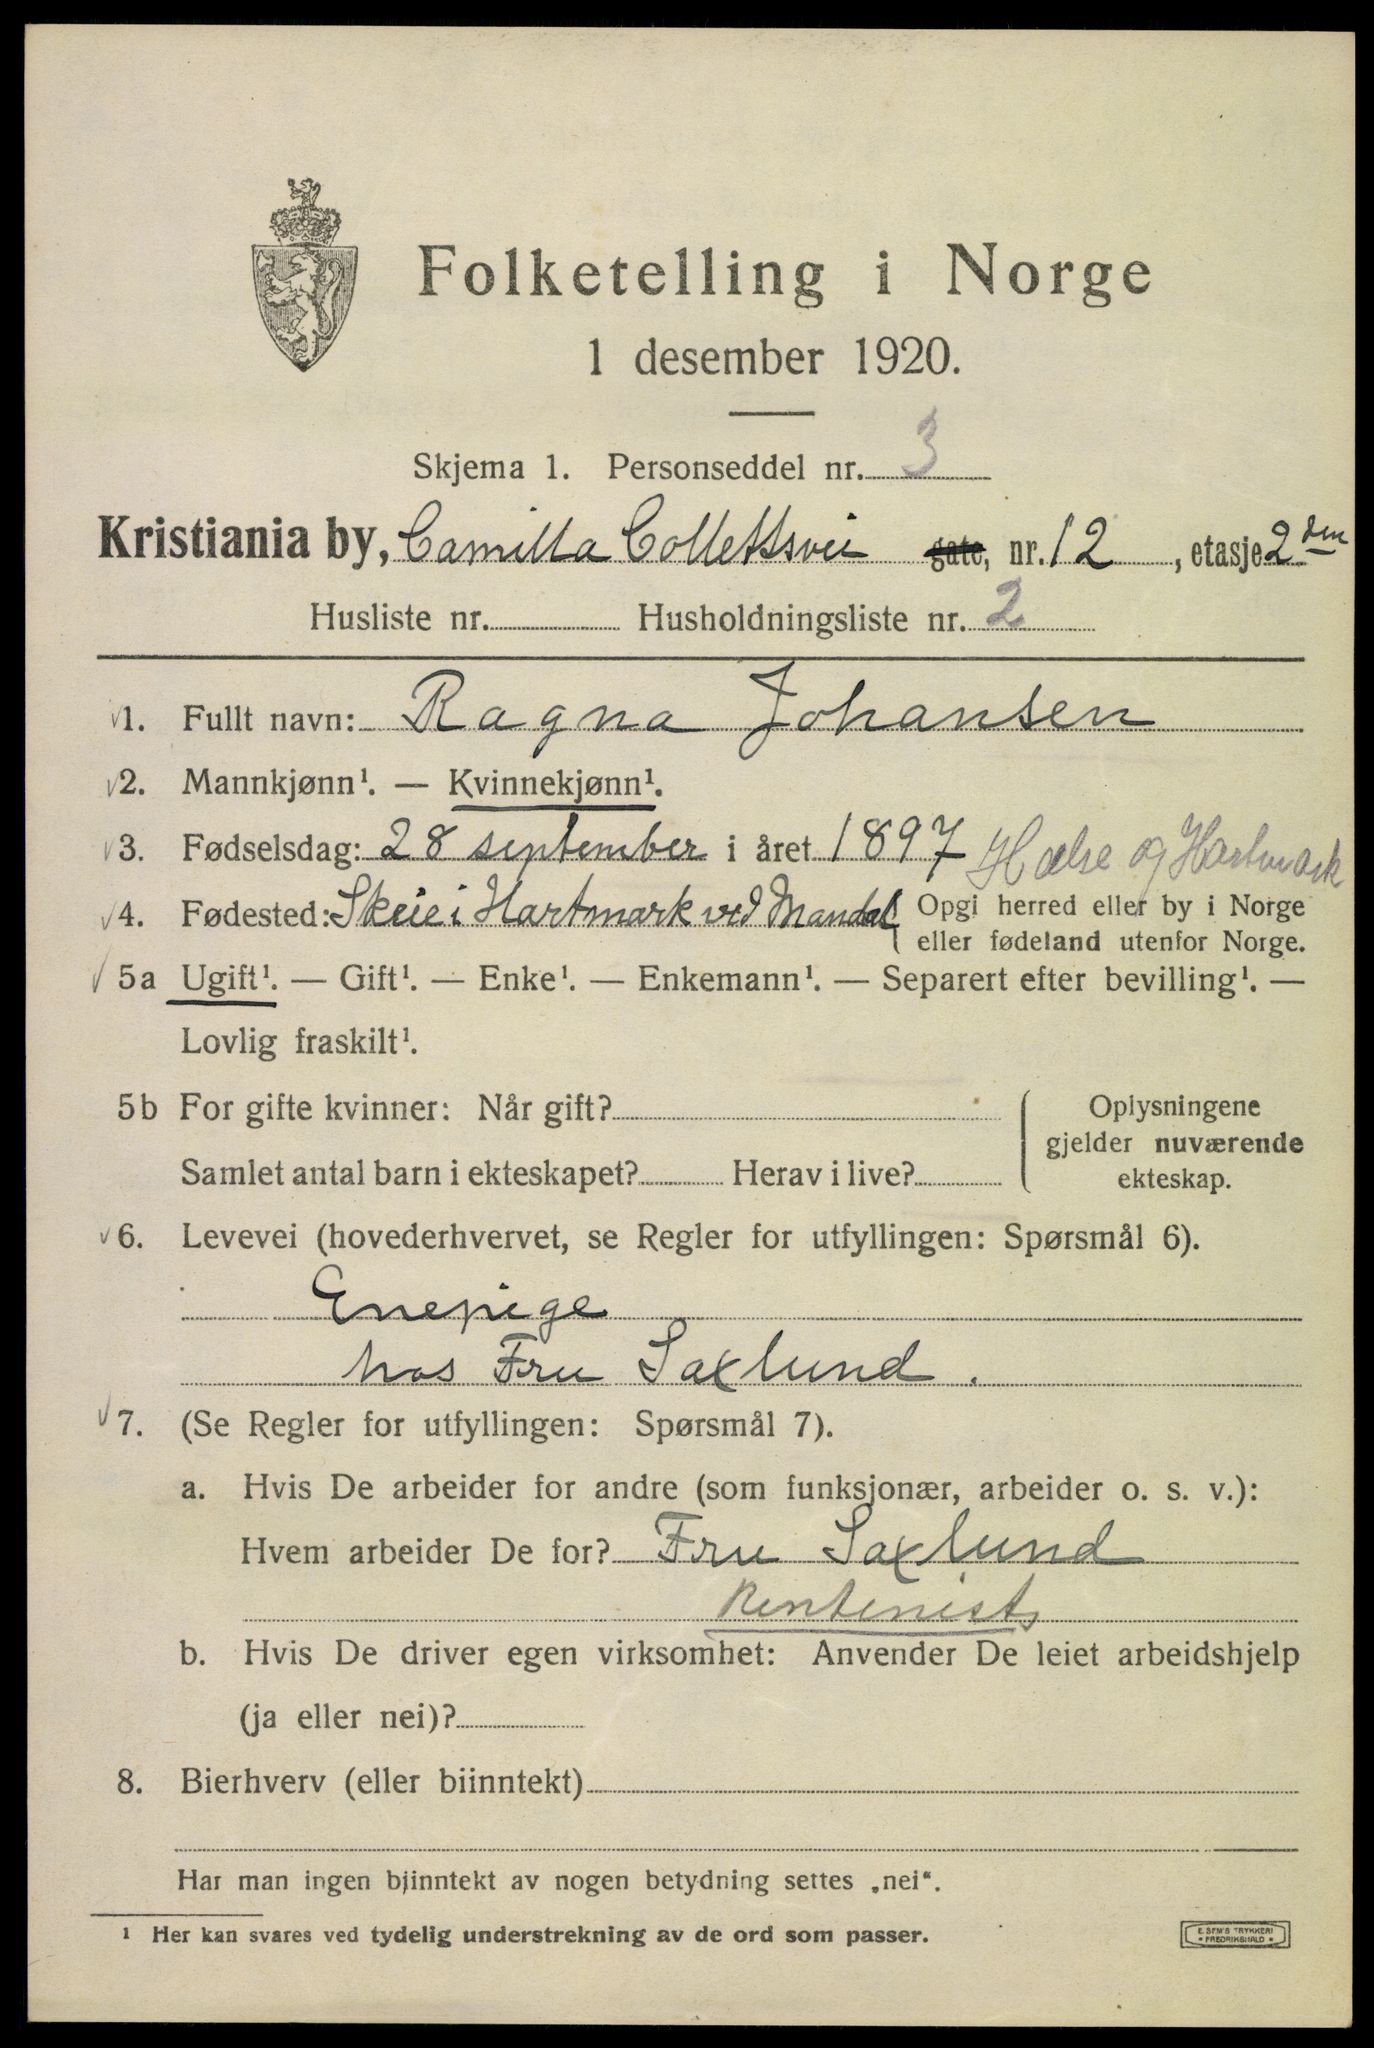 Folketelling i Norge
1 desember 1920.
Skjema 1. Personseddel nr. 3
Kristiania by, Camilla Collettsvei gate, nr. 12, etasje 2den
Husliste nr. Husholdningsliste nr. 2
1. Fullt navn: Ragna Johansen
2. Mannkjønn¹. — Kvinnekjønn¹.
3. Fødselsdag: 28 september i året 1897 Halse og Hartmark
4. Fødested: Skeie i Hartmark ved Mandal { Opgi herred eller by i Norge
eller fødeland utenfor Norge.
5a Ugift¹. — Gift¹. — Enke¹. — Enkemann¹. — Separert efter bevilling¹. —
Lovlig fraskilt¹.
5b For gifte kvinner: Når gift? { Oplysningene
gjelder nuværende
Samlet antal barn i ekteskapet? Herav i live? ekteskap.
6. Levevei (hovederhvervet, se Regler for utfyllingen: Spørsmål 6).
Enepige
hos Fru Saxlund.
7. (Se Regler for utfyllingen: Spørsmål 7).
a. Hvis De arbeider for andre (som funksjonær, arbeider o. s. v.):
Hvem arbeider De for? Fru Saxlund
Rentenist
b. Hvis De driver egen virksomhet: Anvender De leiet arbeidshjelp
(ja eller nei)?
8. Bierhverv (eller biinntekt)
Har man ingen biinntekt av nogen betydning settes „nei“.
¹ Her kan svares ved tydelig understrekning av de ord som passer.
E. SEM'S TRYKKERI
• FREDRIKSHALD •